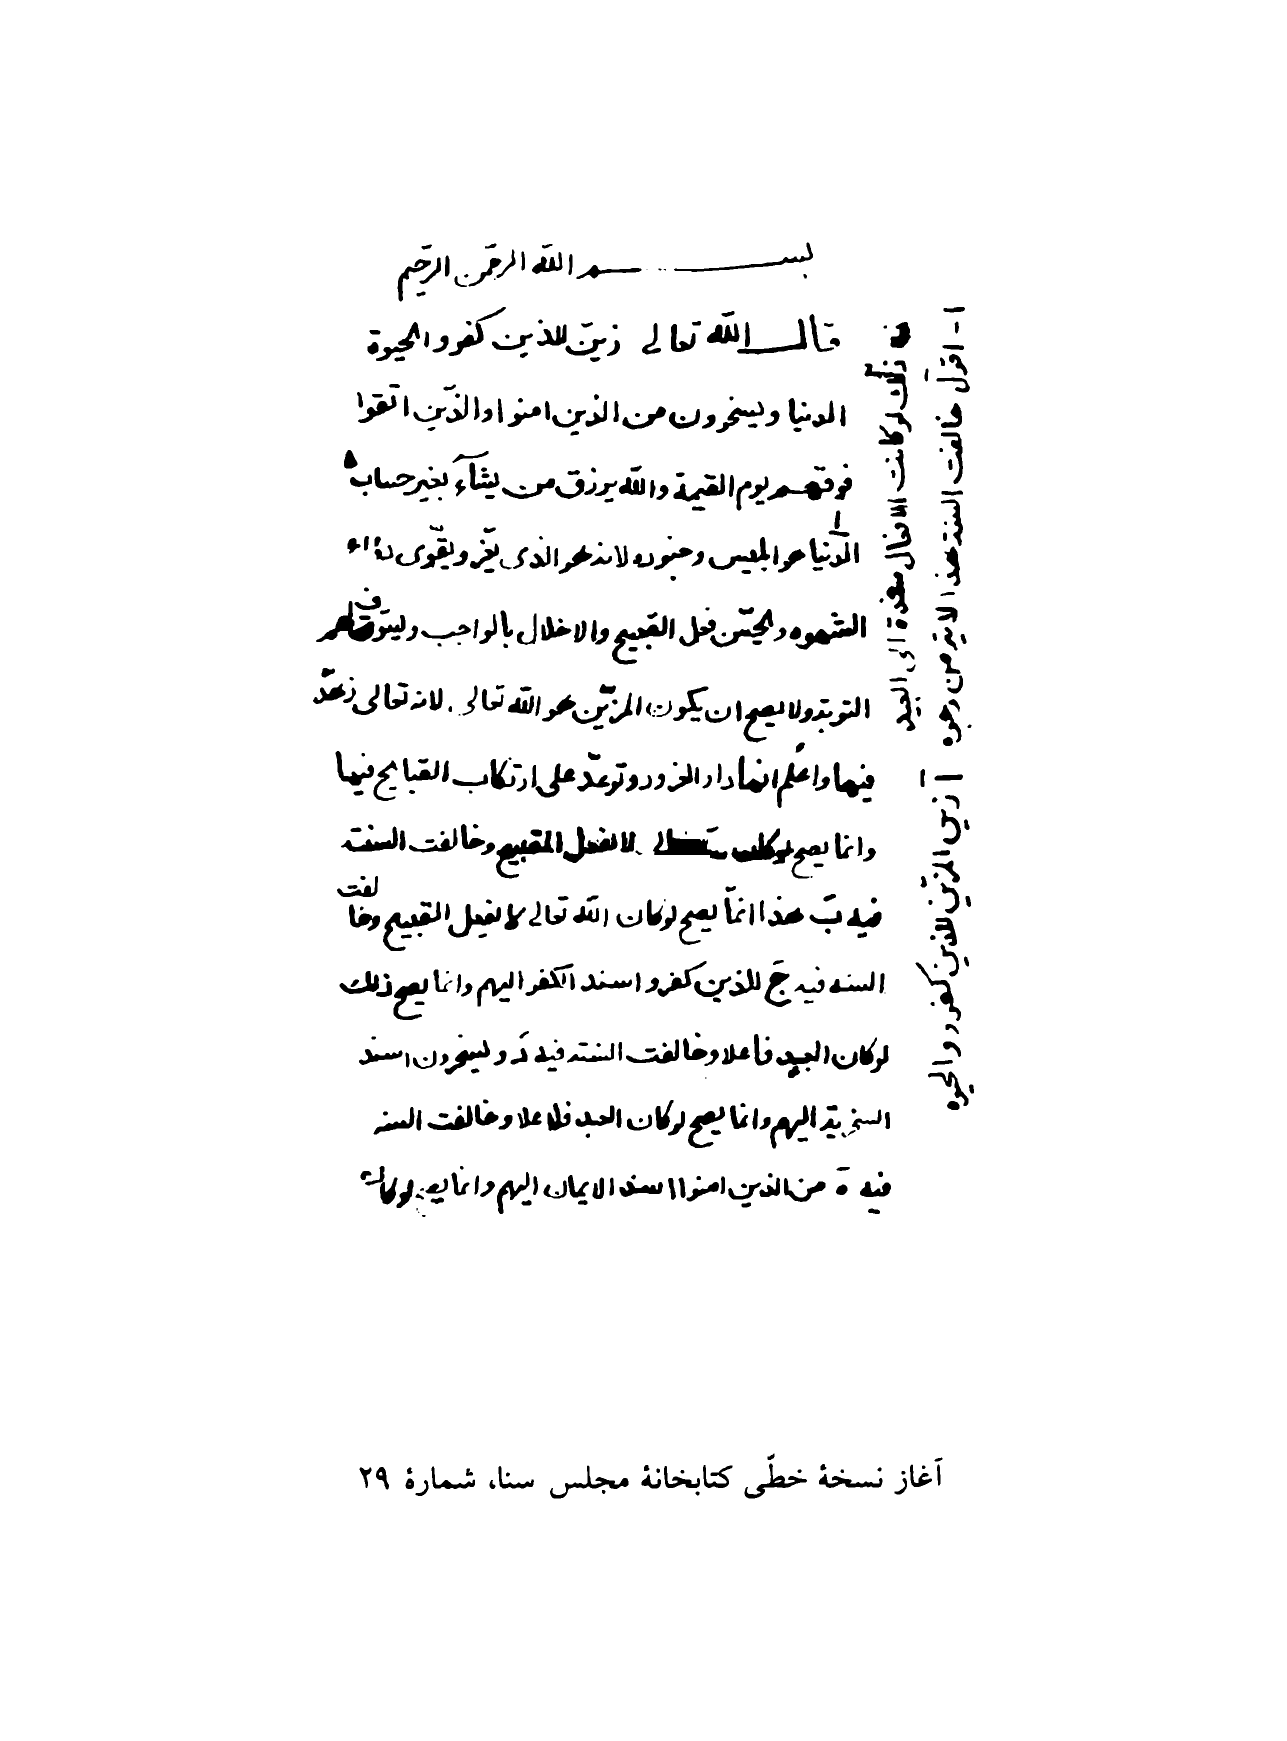 بسم الله الرحمن الرحيم
قال الله تعالى زين للذين كفروا الحيوة
الدنيا ويسخرون من الذين امنوا والذين اتقوا
فوقهم يوم القيمة والله يرزق من يشآء بغير حساب
الدنيا هو ابليس وجنوده لانه هو الذى يغر ويقوى
الشهوه ويحسن فعل القبيح والاخلال بالواجب ويسوف
التوبة ولا يصح ان يكون المزين هو الله تعالى. لانه تعالى زهد
فيها واعلم انها دار الغرور وتوعد على ارتكاب القبايح فيها
وانما يصح لوكان لا يفعل القبيح وخالفت السنة
فيه بَ هذا انما يصح لوكان الله تعالى لا يفعل القبيح وخالفت
السنه فيه جَ للذين كفروا اسند الكفر اليهم وانما يصح ذلك
لوكان العبد فاعلا وخالفت السنة فيه دَ ويسخرون اسند
السخرية اليهم وانما يصح لوكان العبد فاعلا وخالفت السنه
فيه هَ من الذين امنوا اسند الايمان اليهم وانما يصح لوكان
ا - اقول خالفت السنة هذا الاية من وجوه
آ زين المزين للذين كفروا الحيوه
ذلك لو كانت الافعال الى العبيد
آغاز نسخهٔ خطّی کتابخانهٔ مجلس سنا، شمارهٔ ۲۹